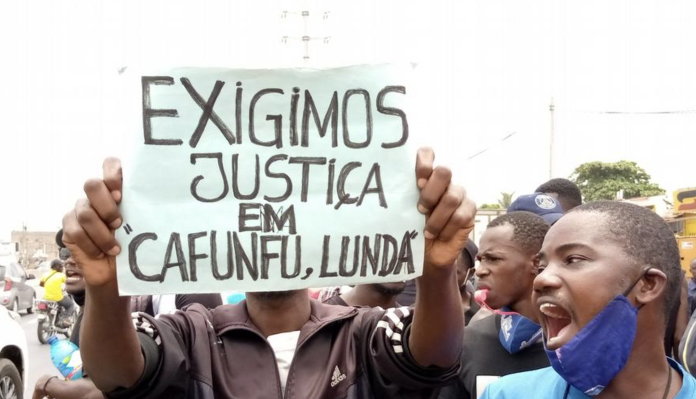 EXIGIMOS
JUSTIÇA
EM
"CAFUNFU, LUNDA"
adidas